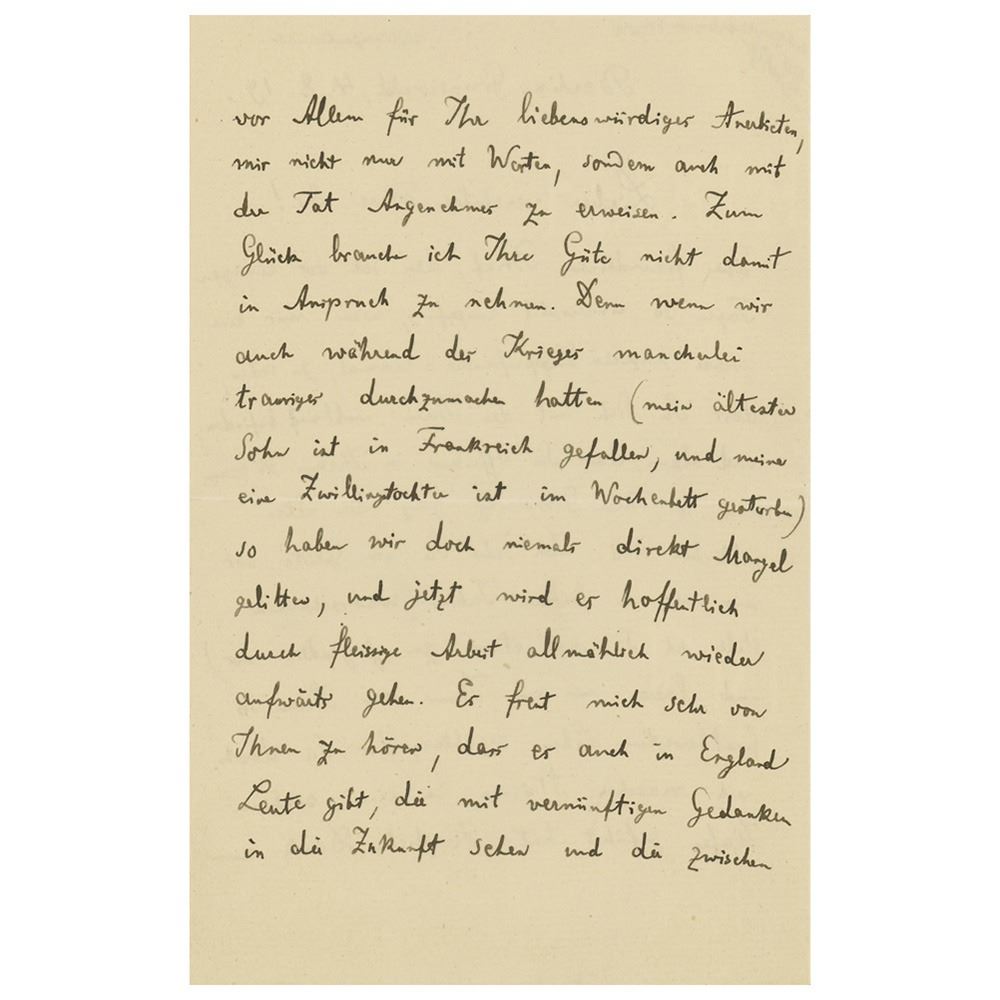 vor Allem für Ihr liebenswürdiges Anerbieten,
mir nicht nur mit Worten, sondern auch mit
der Tat Angenehmes zu erweisen. Zum
Glück brauche ich Ihre Güte nicht damit
in Anspruch zu nehmen. Denn wenn wir
auch während des Krieges mancherlei
trauriges durchzumachen hatten (mein ältester
Sohn ist in Frankreich gefallen, und meine
eine Zwillingstochter ist im Wochenbett gestorben)
so haben wir doch niemals direkt Mangel
gelitten, und jetzt wird es hoffentlich
durch fleissige Arbeit allmählich wieder
aufwärts gehen. Es freut mich sehr von
Ihnen zu hören, dass es auch in England
Leute gibt, die mit vernünftigen Gedanken
in die Zukunft sehen und die zwischen